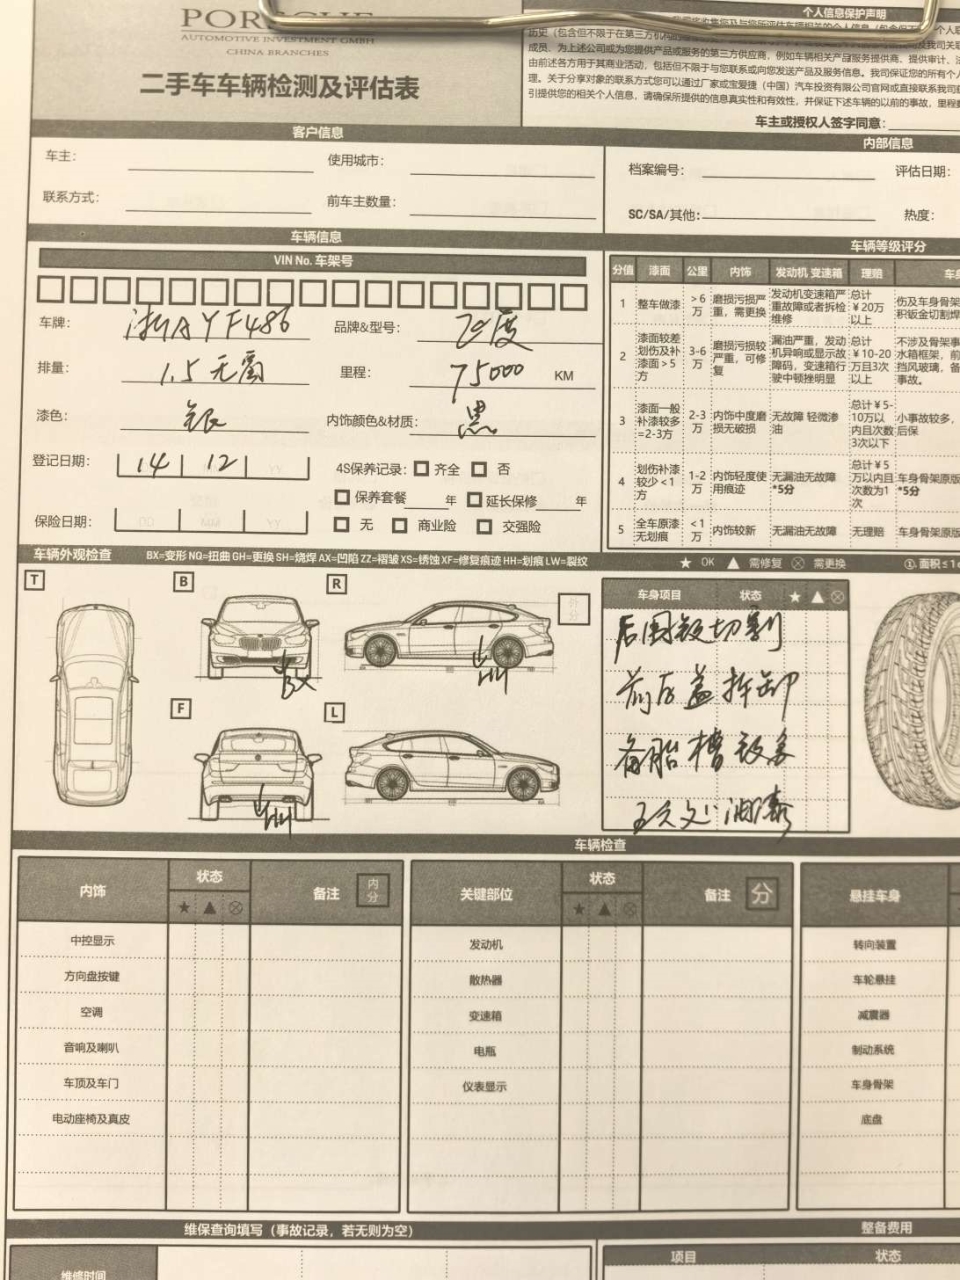 PORSCHE
AUTOMOTIVE INVESTMENT GMBH
CHINA BRANCHES
二手车车辆检测及评估表
个人信息保护声明
历史（包含但不限于在第三方机构的
成员、为上述公司或为您提供产品或服务的第三方供应商，例如车辆相关产品服务提供商、提供审计、法
由前述各方用于其商业活动，包括但不限于与您联系或向您发送产品及服务信息。我司保证您的所有个人
理。关于分享对象的联系方式您可以通过厂家或宝爱捷（中国）汽车投资有限公司官网或直接联系我司
引提供您的相关个人信息，请确保所提供的信息真实性和有效性，并保证下述车辆的以前的事故，里程数
车主或授权人签字同意：
客户信息
车主：
使用城市：
联系方式：
前车主数量：
内部信息
档案编号：
评估日期：
SC/SA/其他：
热度：
车辆信息
VIN No. 车架号
车牌： 浙AYF486
品牌&型号： 速度
排量： 1.5
里程： 75000 KM
漆色： 银
内饰颜色&材质： 黑
登记日期： 14 12 YY
4S保养记录： 齐全 否
保养套餐 年 延长保修 年
保险日期： DD MM YY
无 商业险 交强险
车辆等级评分
分值 漆面 公里 内饰 发动机 变速箱 理赔 车身
1 整车做漆 >6万 磨损污损严重，需更换 发动机变速箱严重故障或者拆检维修 总计¥20万以上 伤及车身骨架 积钣金切割焊
2 漆面较差划伤及补漆面>5方 3-6万 磨损污损较严重，可修复 漏油严重，发动机异响或显示故障码，变速箱行驶中顿挫明显 总计¥10-20万且3次以上 不涉及骨架事 水箱框架，前 挡风玻璃，备 事故。
3 漆面一般补漆较多=2-3方 2-3万 内饰中度磨损无破损 无故障 轻微渗油 总计¥5-10万以内且次数3次以下 小事故较多， 后保
4 划伤补漆较少<1方 1-2万 内饰轻度使用痕迹 无漏油无故障 *5分 总计¥5万以内且次数为1次 车身骨架原版 *5分
5 全车原漆无划痕 <1万 内饰较新 无漏油无故障 无理赔 车身骨架原版
车辆外观检查
BX=变形 NQ=扭曲 GH=更换 SH=烧焊 AX=凹陷 ZZ=褶皱 XS=锈蚀 XF=修复痕迹 HH=划痕 LW=裂纹
★ OK ▲ 需修复 ⊗ 需更换
①. 面积≤1
T
B
R
BX
HH
F
L
HH
车身项目 状态 ★ ▲ ⊗
后围板切割
前后盖拆卸
备胎槽钣金
车辆检查
内饰 状态 ★ ▲ ⊗ 备注 内分
中控显示
方向盘按键
空调
音响及喇叭
车顶及车门
电动座椅及真皮
关键部位 状态 ★ ▲ ⊗ 备注 分
发动机
散热器
变速箱
电瓶
仪表显示
悬挂车身
转向装置
车轮悬挂
减震器
制动系统
车身骨架
底盘
维保查询填写（事故记录，若无则为空）
维修时间
整备费用
项目 状态